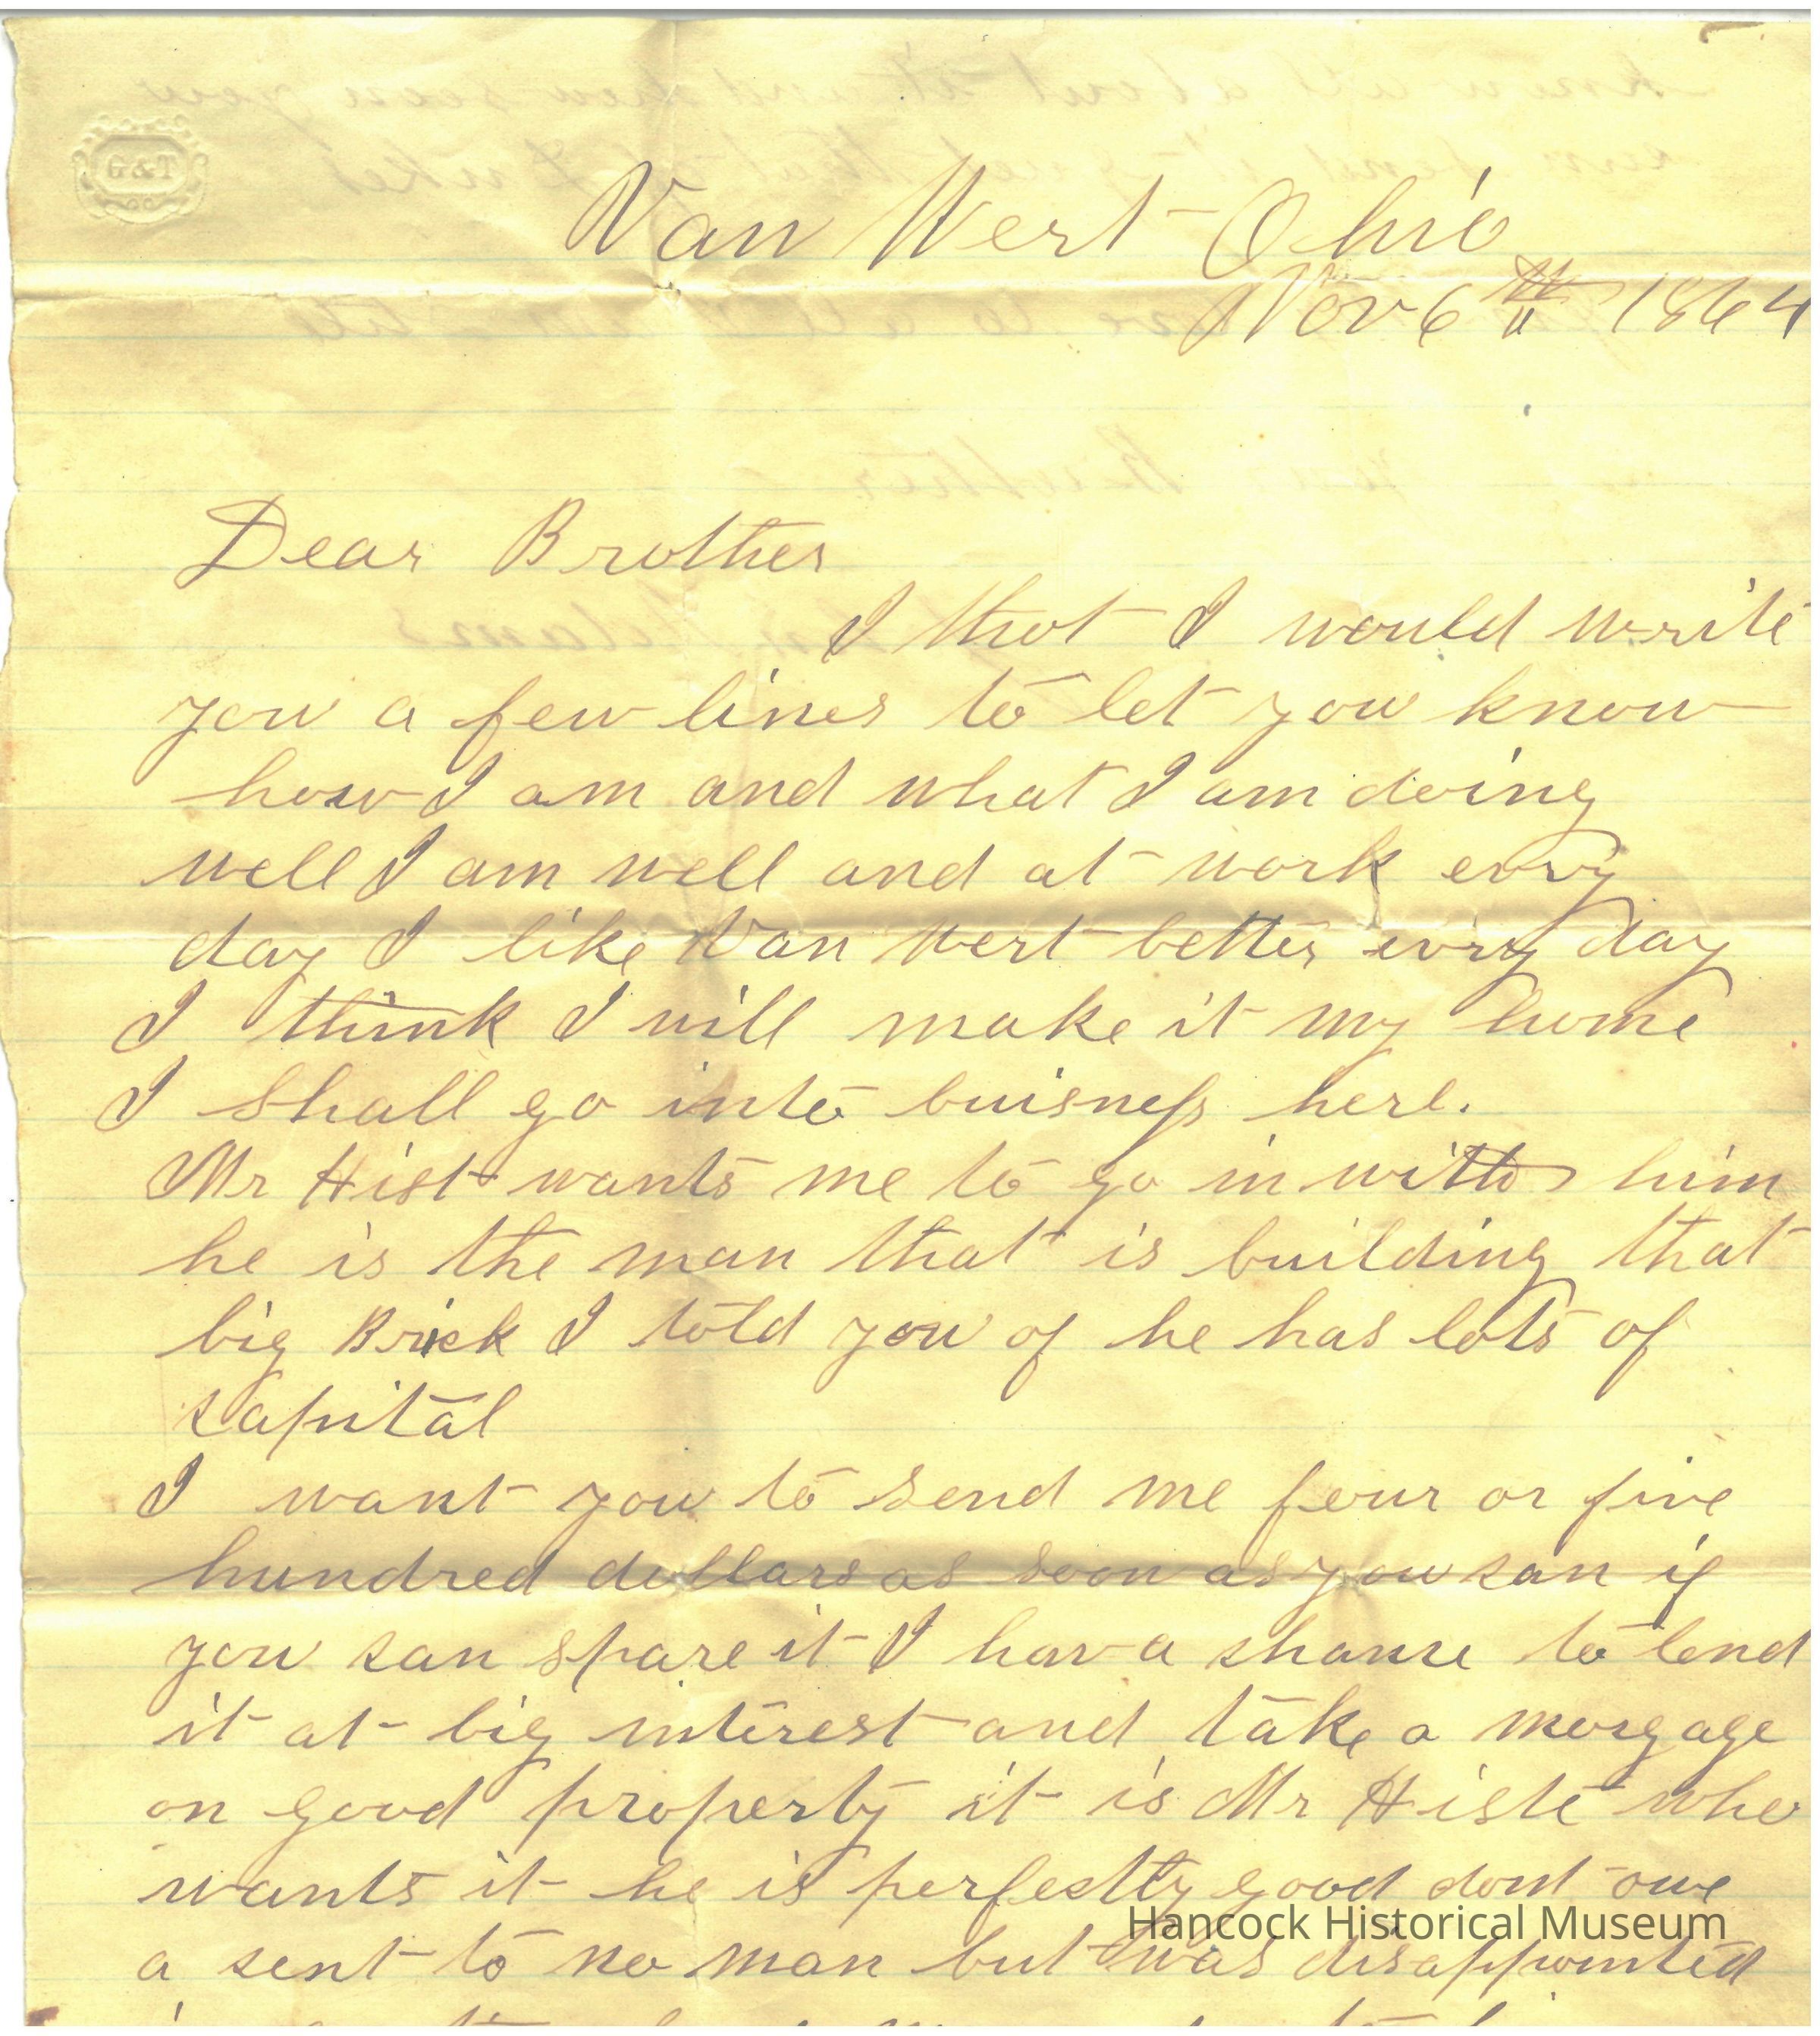 G & T
Van Wert Ohio
Nov 6th 1864
Dear Brother
I thot I would write
you a few lines to let you know
how I am and what I am doing
well I am well and at work evry
day I like Van Wert better evry day
I think I will make it my home
I shall go into buisness here.
Mr Hist wants me to go in with him
he is the man that is building that
big Brick I told you of he has lots of
capital
I want you to send me four or five
hundred dollars as soon as you can if
you can spare it I hav a chance to lend
it at big interest and take a morgage
on good property it is Mr Histe who
wants it he is perfectly good dont owe
Hancock Historical Museum
a cent to no man but was disappointed